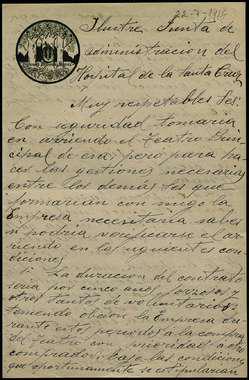 22-7-1915
Ilustre Junta de
administración del
Hospital de la Santa Cruz
Muy respetables Sres.
Con seguridad tomaria
en arriendo el Teatro Prin-
cipal de esa, pero para ha-
cer las gestiones necesarias
entre los demás Sres que
formarian con migo la
Empresa necesitaria saber
si podria verificarse el arri-
endo en las siguientes con-
diciones
La duracion del contrato
seria por cinco años forzosos y
otros tantos de voluntarios
teniendo obcion la Empresa du-
rante estos periodos a la compra
del Teatro con prioridad a otro
comprador bajo las condiciones
que oportunamente se estipularian